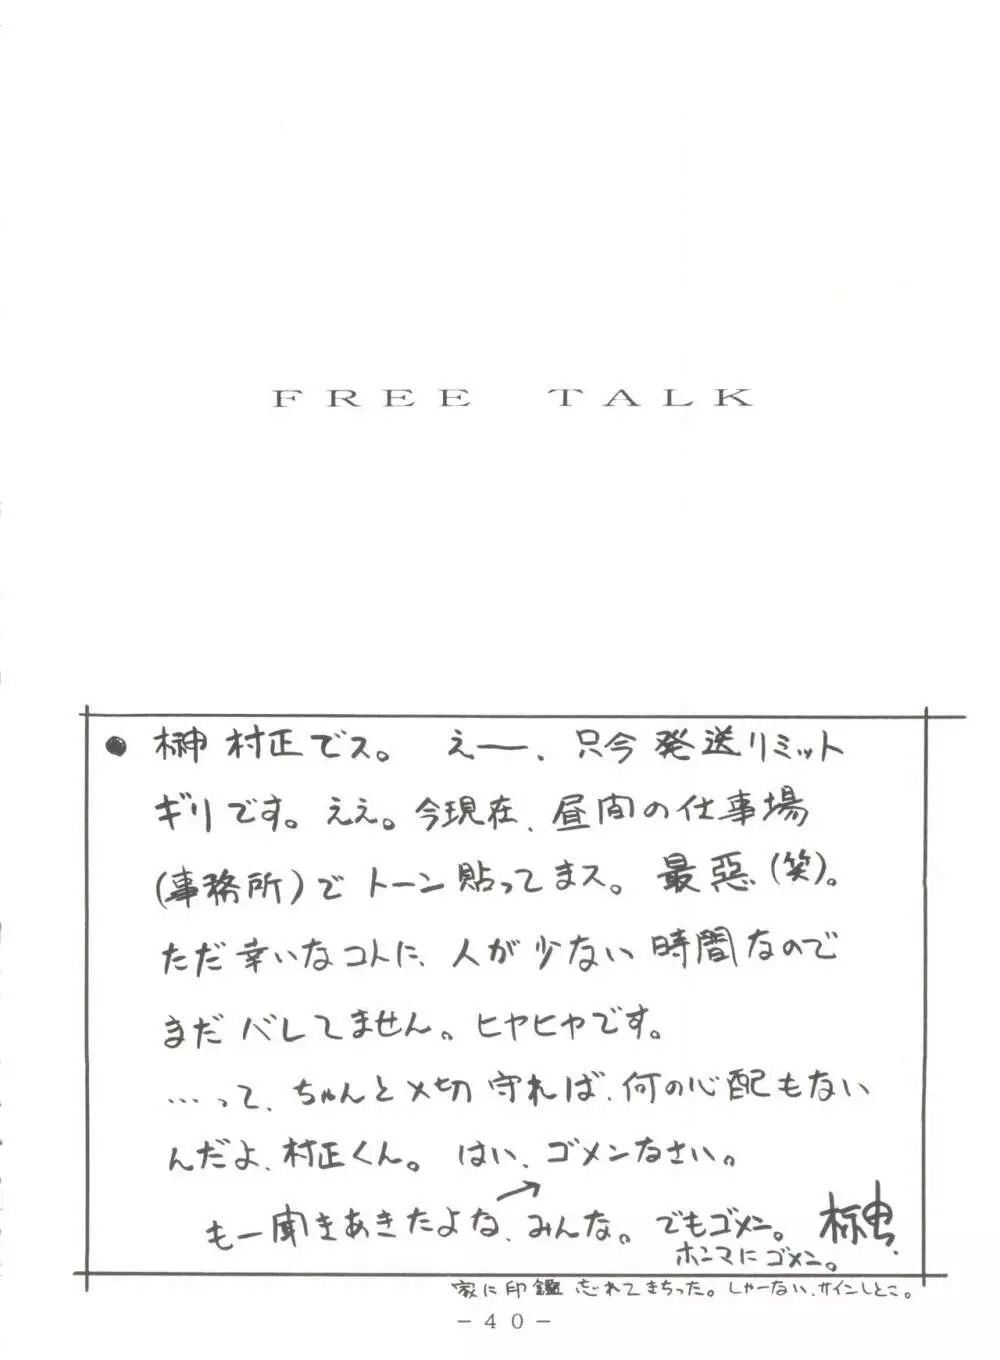 FREE TALK
● 榊 村正でス。 えー、只今発送リミット
ギリです。ええ。今現在、昼間の仕事場
(事務所)で トーン貼ってまス。 最悪(笑)。
ただ幸いなコトに、人が少ない時間なので
まだバレしてません。ヒヤヒヤです。
…って、ちゃんと〆切守れば、何の心配もない
んだよ、村正くん。 はい、ゴメンなさい。
もー聞きあきたよな、みんな。でもゴメン。
ホンマにゴメン。
家に印鑑忘れてきちった。しゃーない、サインしとこ。
-40-